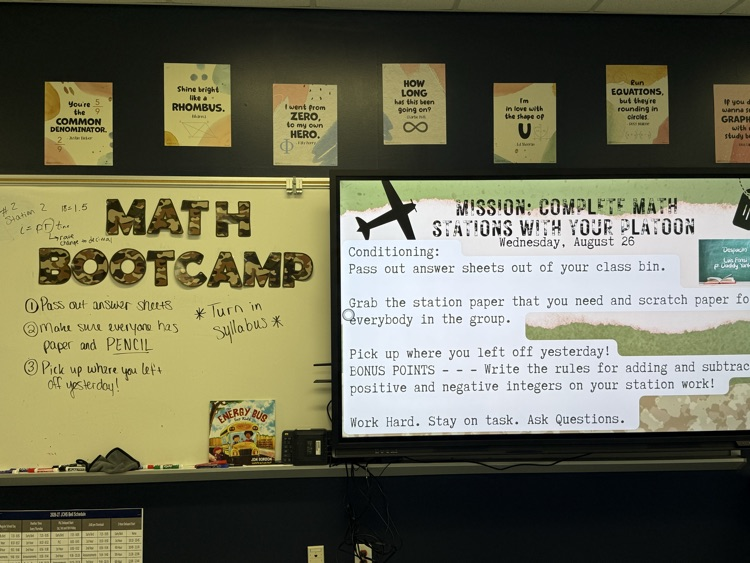 You're
the
COMMON
DENOMINATOR.
5
9
2
9
Shine bright
like a
RHOMBUS.
I went from
ZERO,
to my own
HERO.
HOW
LONG
has this been
going on?
I'm
in love with
the shape of
U
Run
EQUATIONS,
but they're
rounding in
circles.
If you
wanna
GRAPH
with
study
#2
Station 2
MATH
BOOTCAMP
① Pass out answer sheets
② Make sure everyone has
paper and PENCIL
③ Pick up where you left
off yesterday!
* Turn in
syllabus *
ENERGY BUS
JON GORDON
MISSION: COMPLETE MATH
STATIONS WITH YOUR PLATOON
Wednesday, August 26
Conditioning:
Pass out answer sheets out of your class bin.
Grab the station paper that you need and scratch paper fo
everybody in the group.
Pick up where you left off yesterday!
BONUS POINTS - - - Write the rules for adding and subtrac
positive and negative integers on your station work!
Work Hard. Stay on task. Ask Questions.
Despacito
2026-27 JCHS Bell Schedule